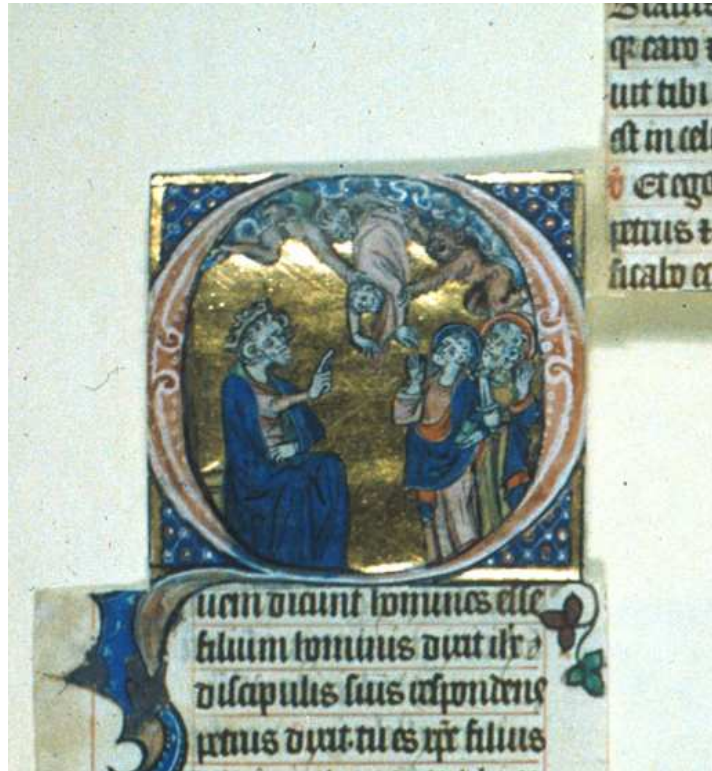 caro
uit tibi
est in cel
Et ego
petrus ⁊
ficabo ec
Quem dicunt homines esse
filium hominis dixit
discipulis suis respondens
petrus dixit. tu es xpc filius